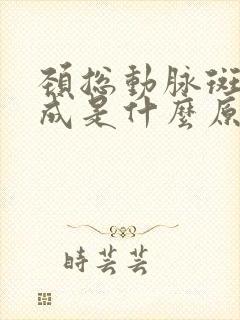 頸総動脉斑
成是什麼原
時芸芸